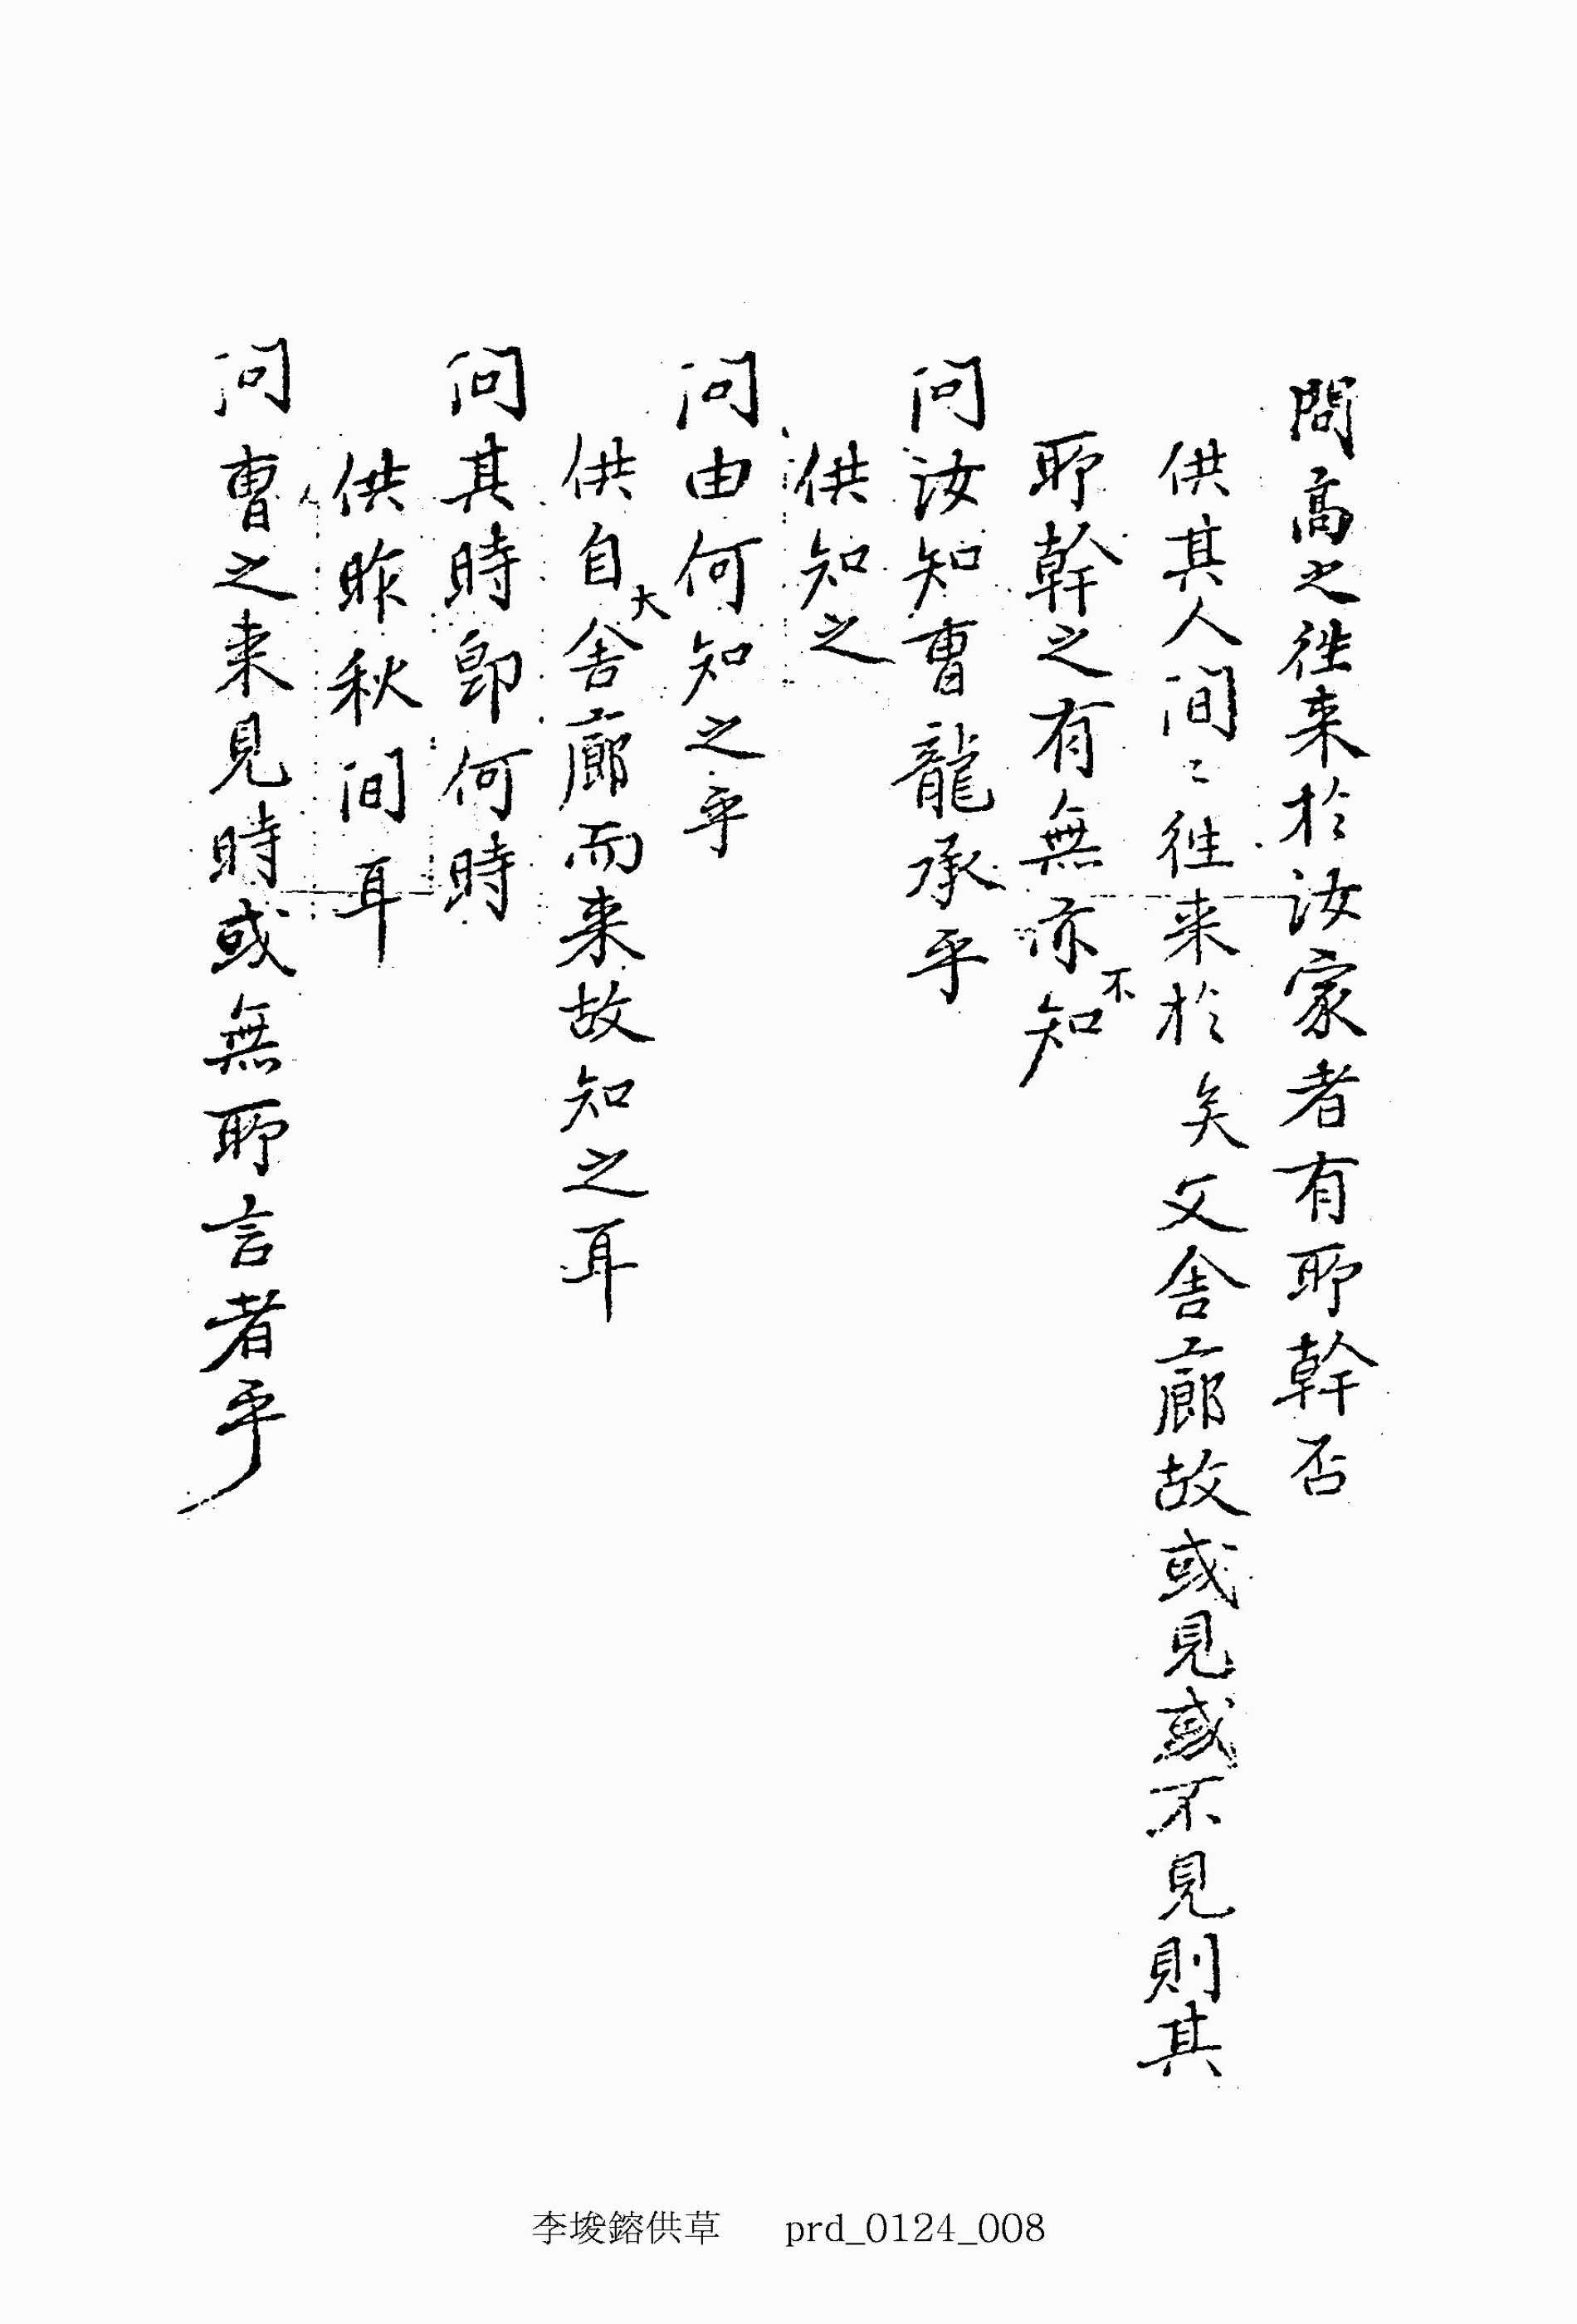 問高之徃来於汝家者有所幹否
供其人间〻徃来於矣父舍廊故或見或不見則其
所幹之有無亦不知
问汝知曺龍承乎
供知之
问由何知之乎
供自大舍廊而来故知之耳
问其時卽何時
供昨秋间耳
问曺之来見時或無所言者乎
李埈鎔供草 prd_0124_008